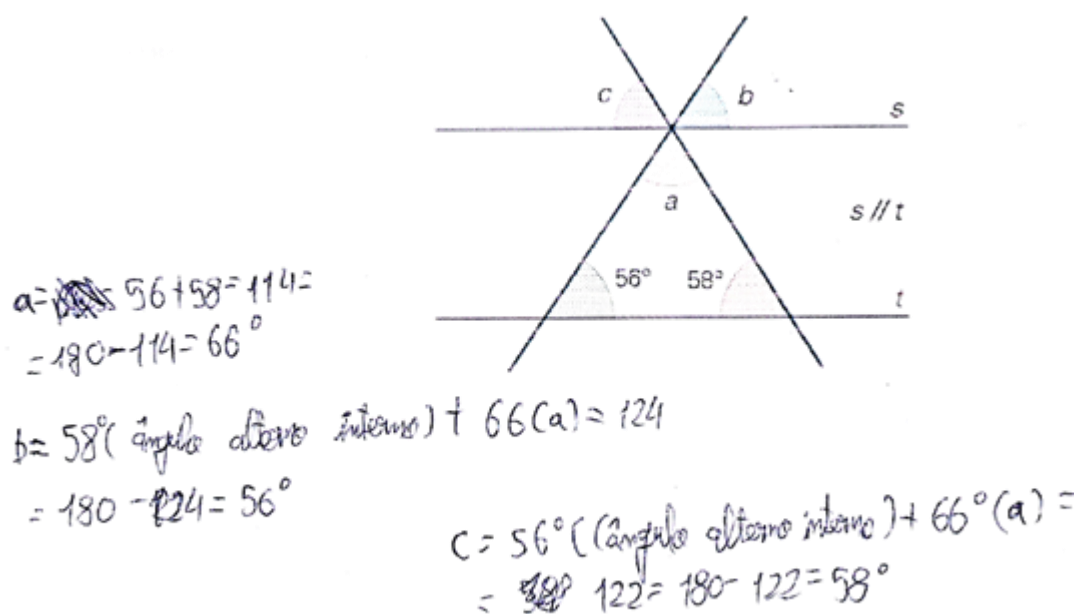 c b
s
a
s // t
56° 58°
t
a= 56+58=114=
=180-114=66°
b= 58°(ângulo alterno interno)+ 66(a)=124
= 180-124=56°
c= 56°((ângulo alterno interno)+ 66°(a)=
= 122=180-122=58°